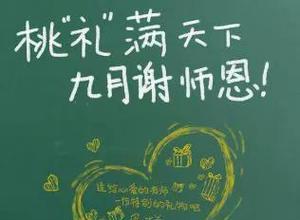 桃“礼”满天下
九月谢师恩!
送给心爱的老师
一份特别的礼物吧